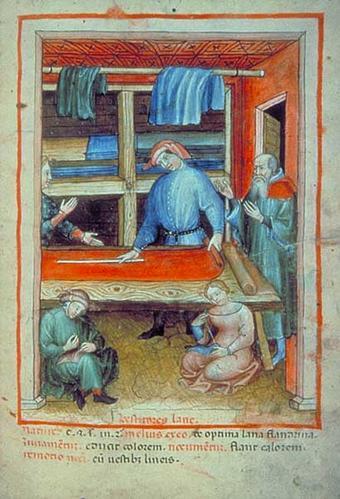 Vestitores lane.
Nature. c. τ. s. in. 2. melius exeo. de optima lana flandrina.
iuuamentum. educit calorem. nocumentum. fiant calorem.
remotio noc̄i. cū uestibus lineis.